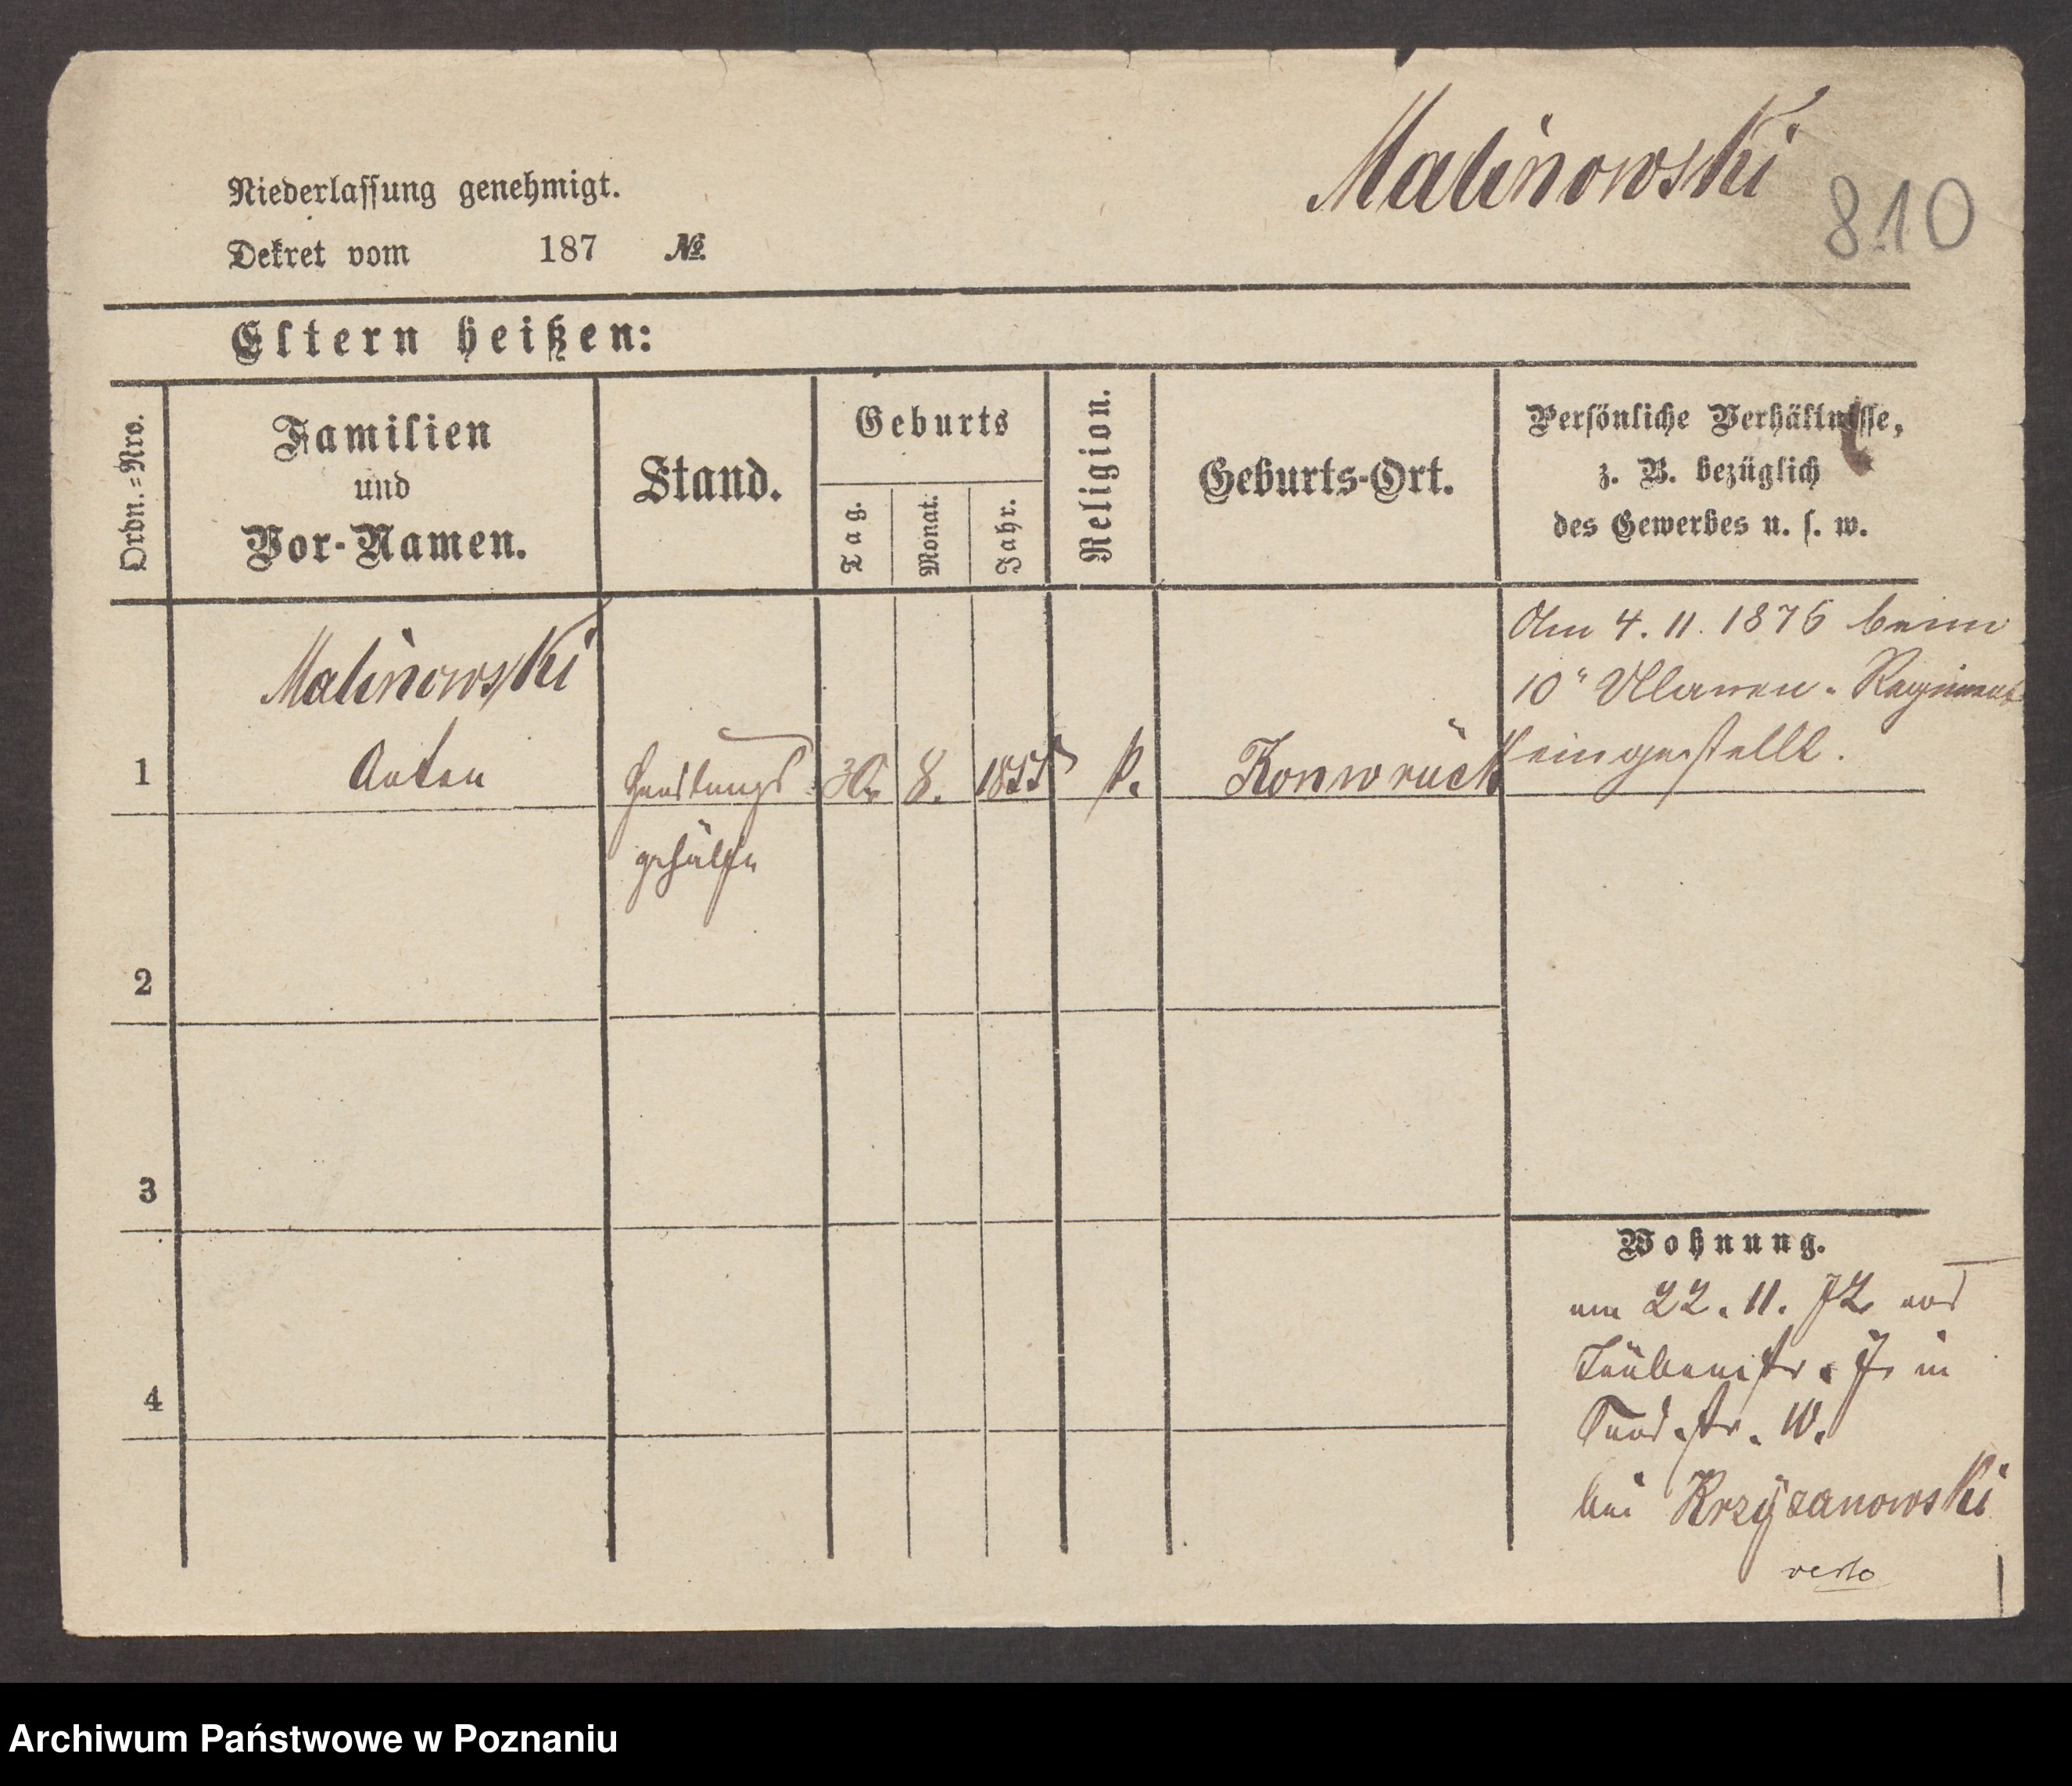 Malinowski
810
Niederlassung genehmigt.
Dekret vom 187 №
Eltern heißen:
Ordn.=Nro.
Familien
und
Vor-Namen.
Stand.
Geburts
Tag.
Monat.
Jahr.
Religion.
Geburts-Ort.
Persönliche Verhältnisse,
z. B. bezüglich
des Gewerbes u. s. w.
Am 4. 11. 1876 beim
10" Ulanen-Regiment
eingestellt.
Malinowski
1 Anton Handlungs 30. 8. 1855 k. Konwrück
gehülfe
2
3
4
Wohnung.
am 22. 11. 72 aus
Taubenstr. 7. in
str. 10.
bei Krzyzanowski
Archiwum Państwowe w Poznaniu